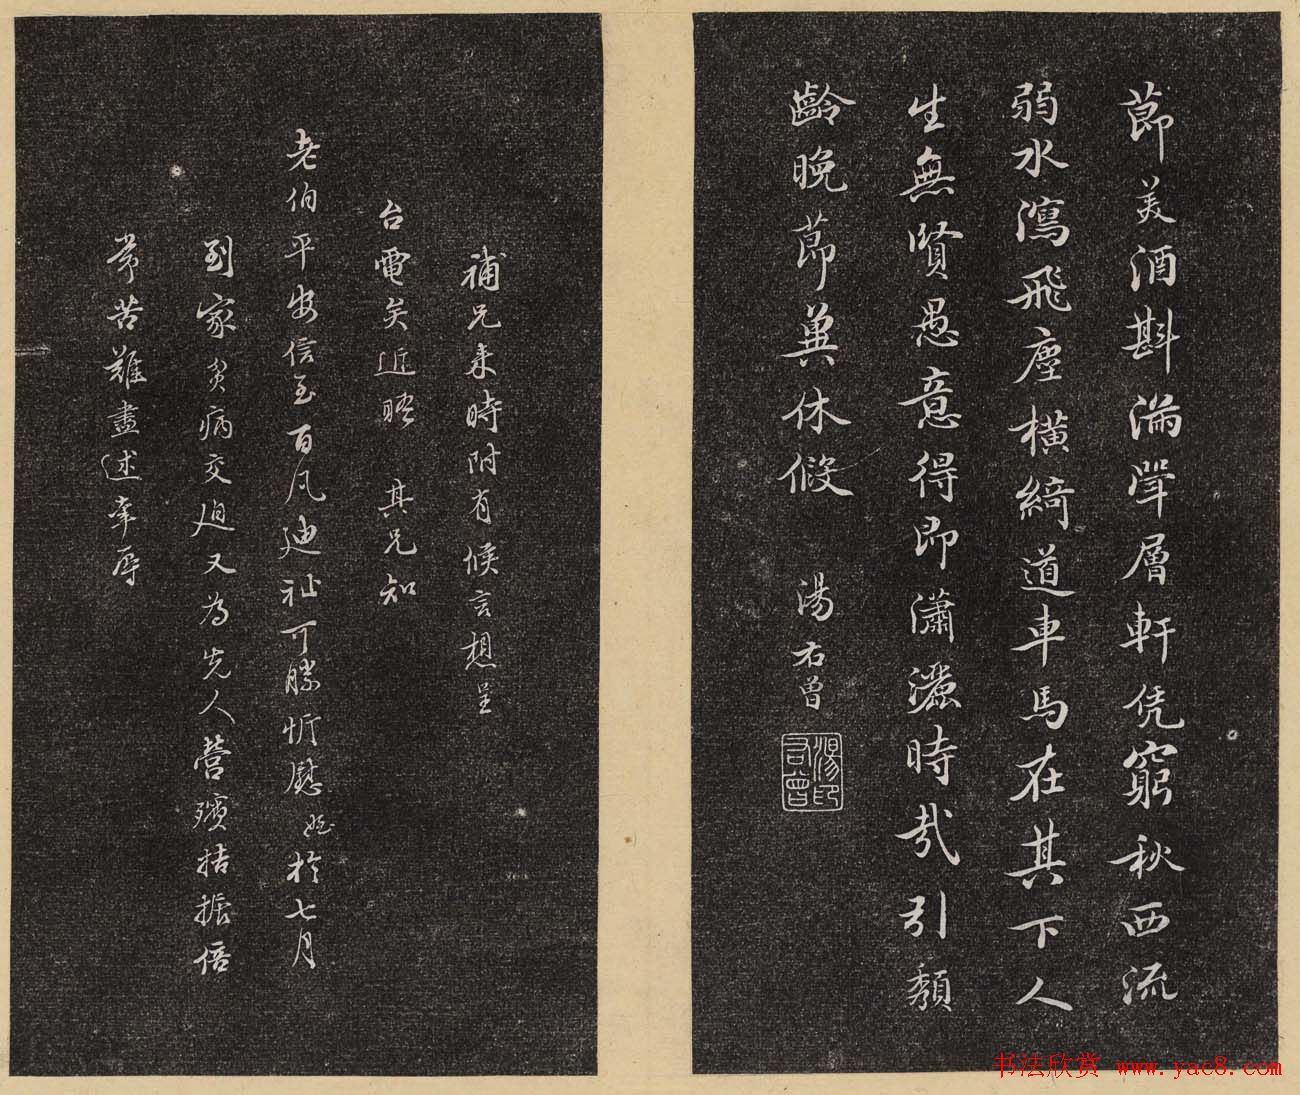 節美酒斟滿斝層軒凭窮秋西流
弱水瀉飛塵橫綺道車馬在其下人
生無賢愚意得即瀟灑時哉引頹
齡晚節冀休假
湯右曾
湯右曾印
補兄來時附有候言想呈
台電矣近晤 其兄知
老伯平安信至百凡迪祉可勝忻慰 於七月
到家貧病交迫又為先人營殯拮据倍
常苦難盡述幸辱
书法欣赏 www.yac8.com